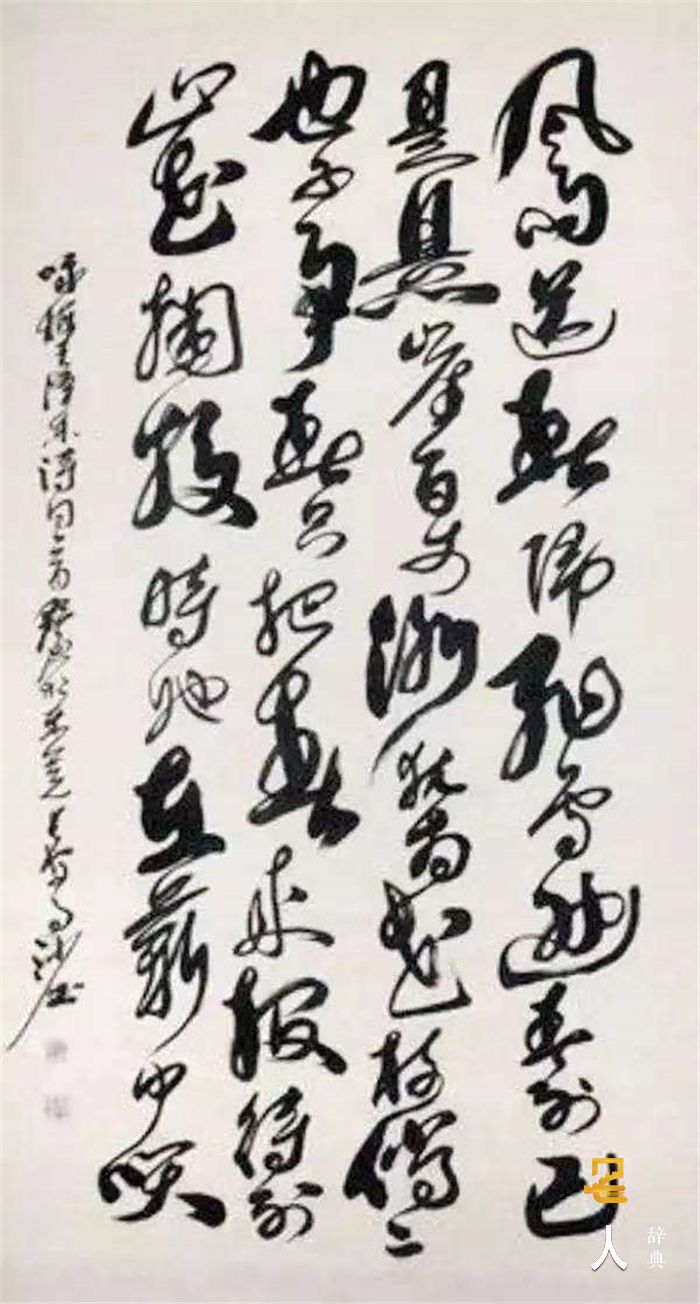 風雨送春歸飛雪迎春到已
是懸崖百丈冰猶有花枝俏二
也不爭春只把春來報待到
山花爛漫時她在叢中笑
咏梅毛澤東詩詞一首
名人
辞典